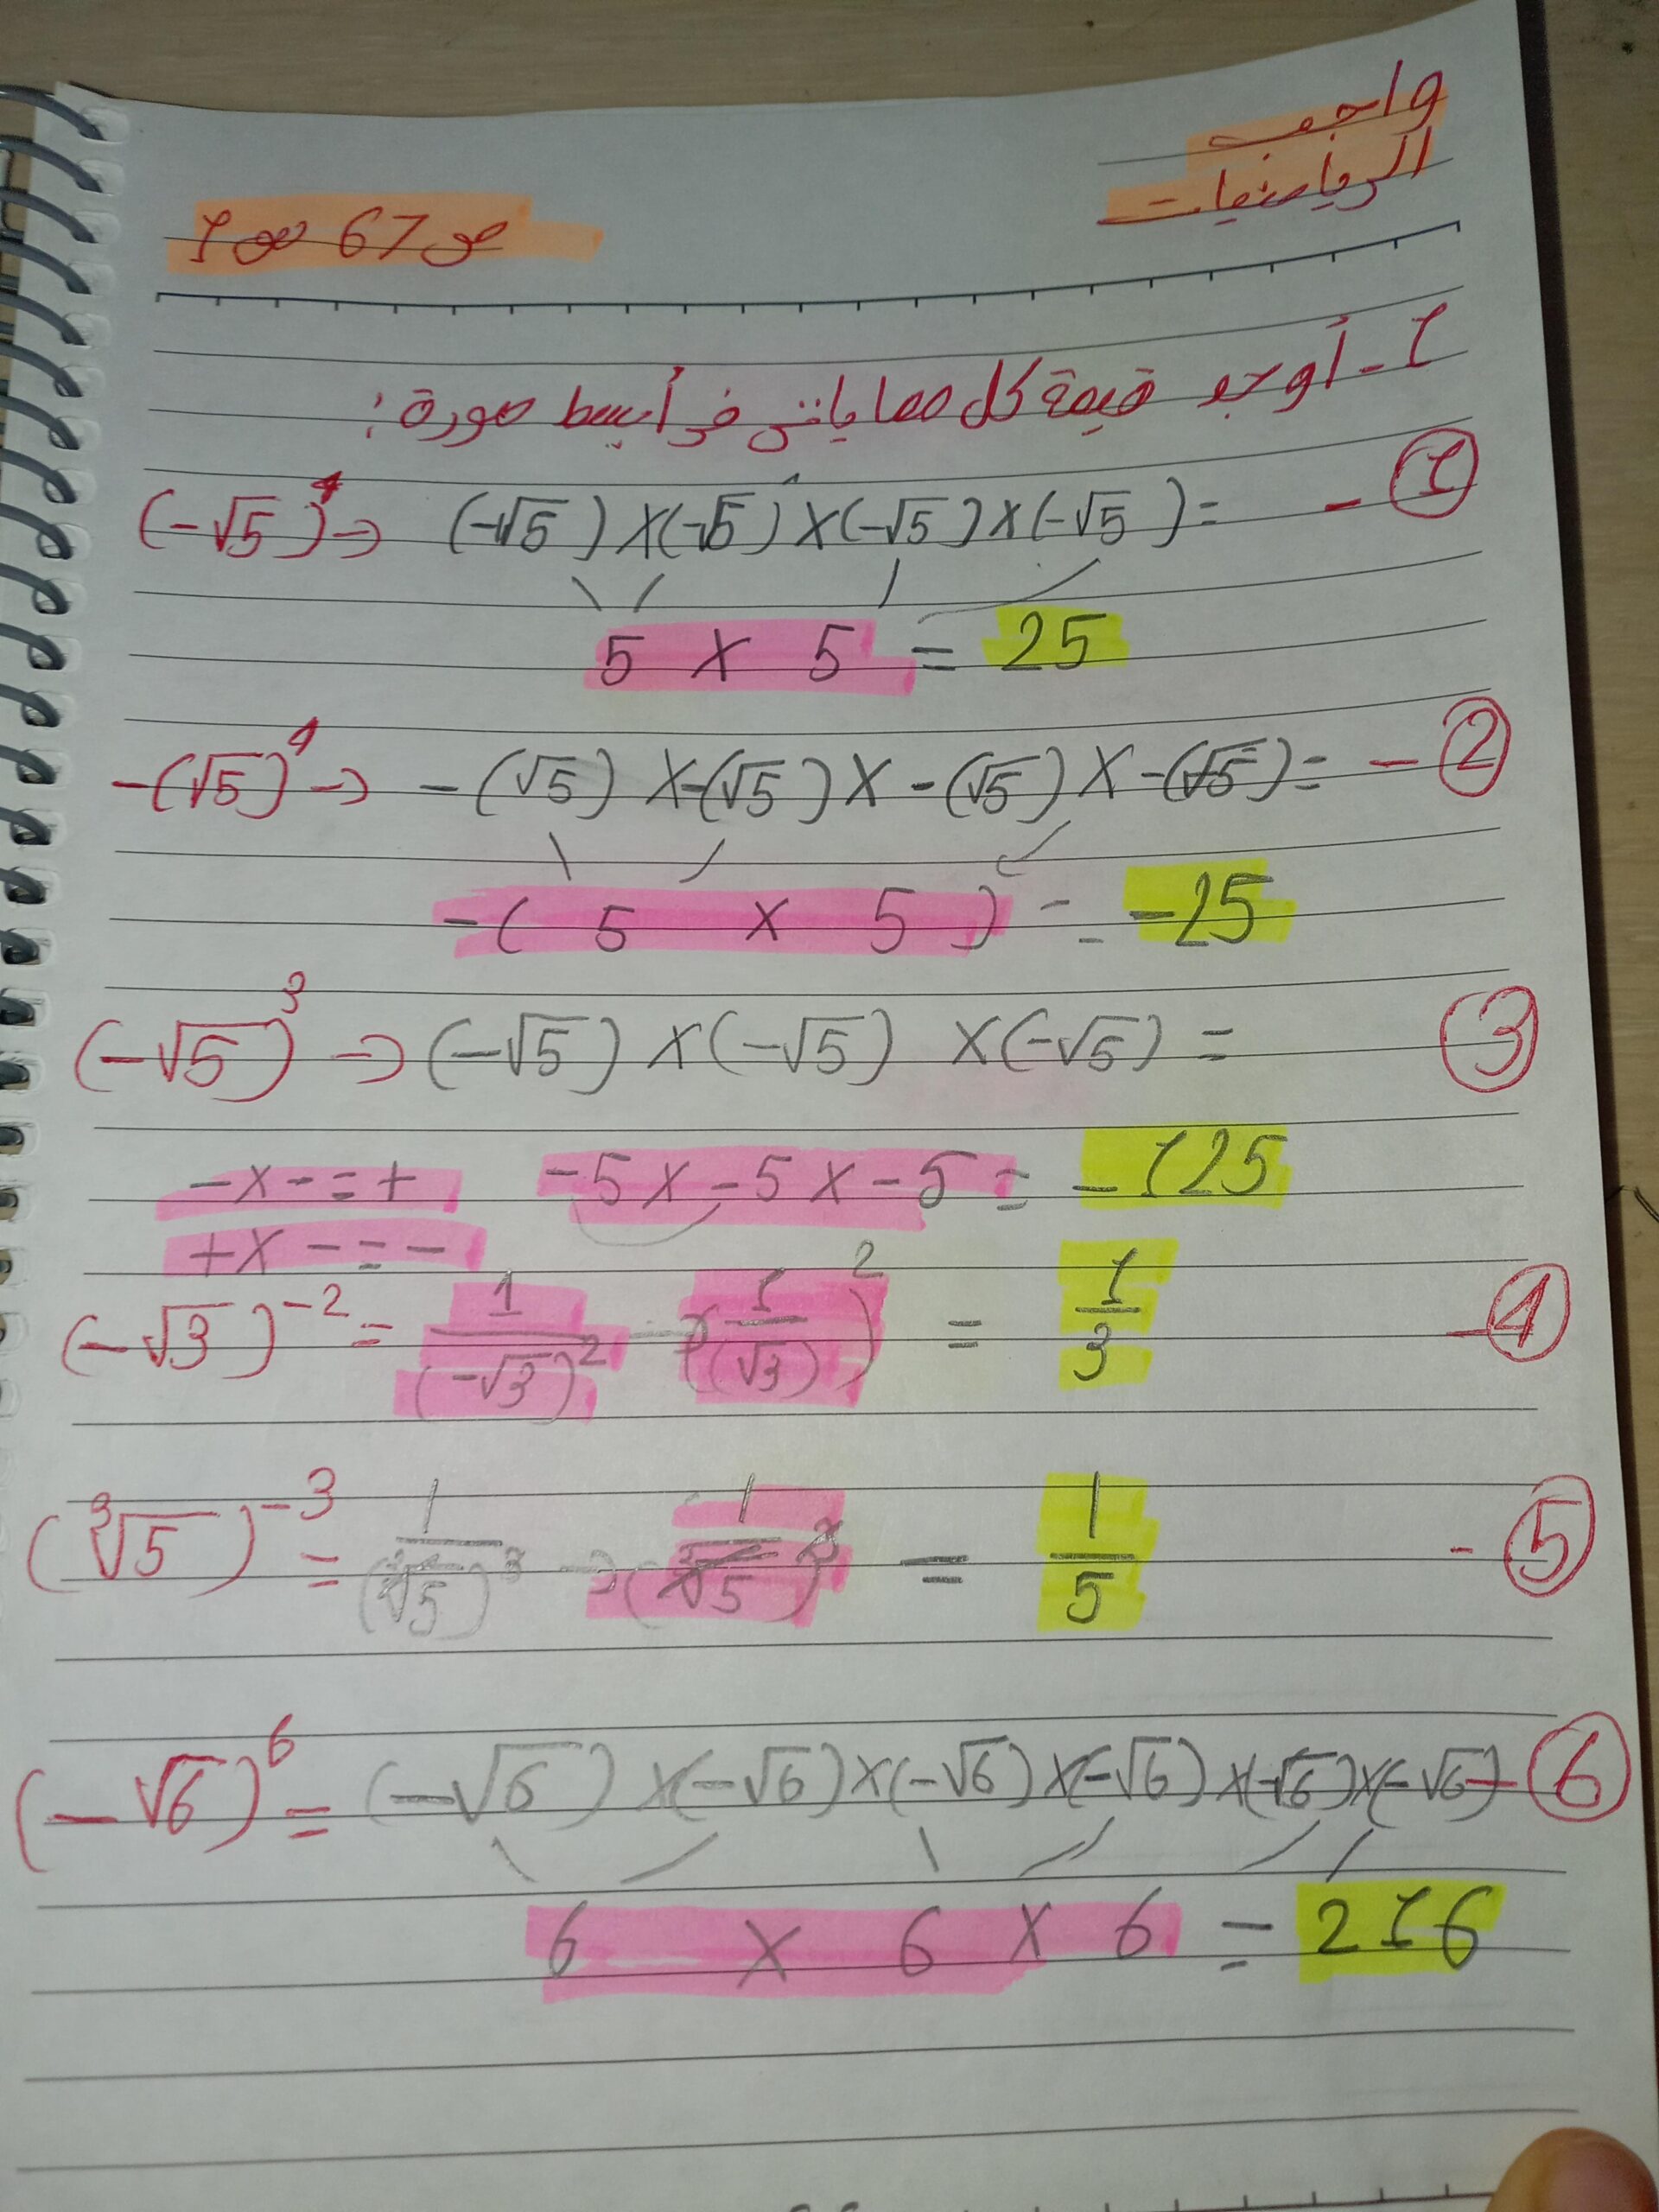 واجب
الرياضيات
ص 67 س 1
1- أوجد قيمة كل مما يأتي في أبسط صورة:
(-√5)⁴ → (-√5) × (-√5) × (-√5) × (-√5) = - ①
5 × 5 = 25
-(√5)⁴ → -(√5) × -(√5) × -(√5) × -(√5) = - ②
-( 5 × 5 ) = -25
(-√5)³ → (-√5) × (-√5) × (-√5) = ③
- × - = + -5 × -5 × -5 = -125
+ × - = -
(-√3)⁻² = 1/(-√3)² → (1/(√3))² = 1/3 - ④
(∛5)⁻³ = 1/(∛5)³ → 1/(∛5)³ = 1/5 - ⑤
(-√6)⁶ = (-√6) × (-√6) × (-√6) × (-√6) × (-√6) × (-√6) - ⑥
6 × 6 × 6 = 216